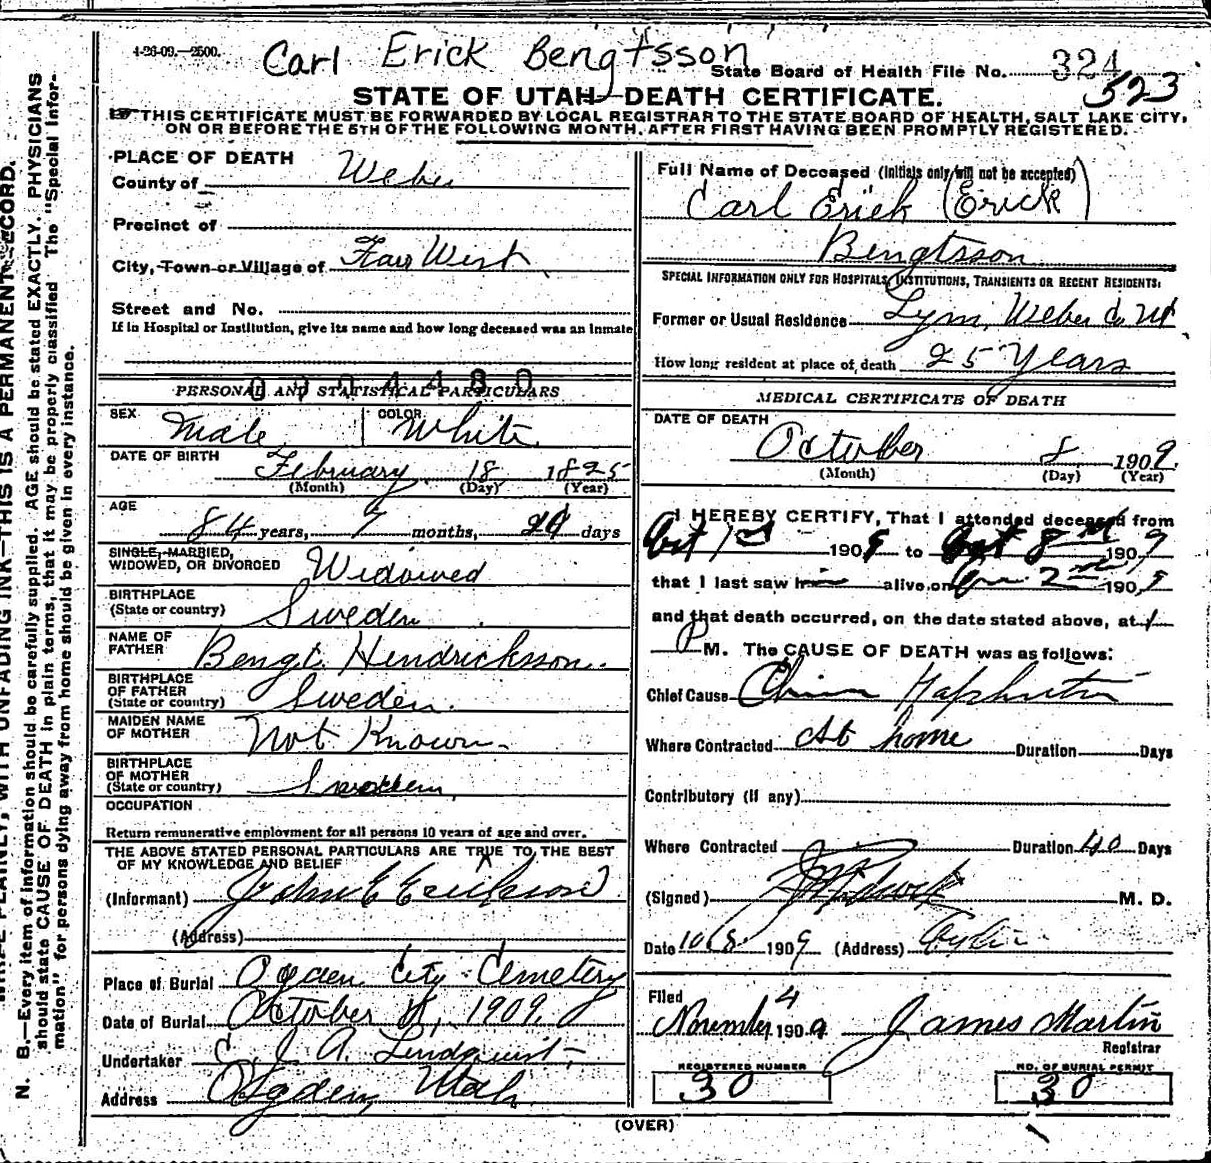 4-26-09.—2500.
Carl Erick Bengtsson
State Board of Health File No. 324
523
STATE OF UTAH—DEATH CERTIFICATE.
THIS CERTIFICATE MUST BE FORWARDED BY LOCAL REGISTRAR TO THE STATE BOARD OF HEALTH, SALT LAKE CITY,
ON OR BEFORE THE 5TH OF THE FOLLOWING MONTH, AFTER FIRST HAVING BEEN PROMPTLY REGISTERED.
PLACE OF DEATH
County of Weber
Precinct of
City, Town or Village of Farr West
Street and No.
If in Hospital or Institution, give its name and how long deceased was an inmate
0004480
PERSONAL AND STATISTICAL PARTICULARS
SEX Male
COLOR White
DATE OF BIRTH February 18 1825
(Month) (Day) (Year)
AGE
84 years, 7 months, days
SINGLE, MARRIED,
WIDOWED, OR DIVORCED Widowed
BIRTHPLACE
(State or country) Sweden
NAME OF
FATHER Bengt Hendricksson
BIRTHPLACE
OF FATHER
(State or country) Sweden.
MAIDEN NAME
OF MOTHER Not Known
BIRTHPLACE
OF MOTHER
(State or country) Sweden
OCCUPATION
Return remunerative employment for all persons 10 years of age and over.
THE ABOVE STATED PERSONAL PARTICULARS ARE TRUE TO THE BEST
OF MY KNOWLEDGE AND BELIEF
(Informant) John E Erickson
(Address)
Place of Burial Ogden City Cemetery
Date of Burial October 11, 1909.
Undertaker C. J. A. Lindquist
Address Ogden, Utah
Full Name of Deceased (Initials only will not be accepted)
Carl Erick (Erick)
Bengtsson
SPECIAL INFORMATION ONLY FOR HOSPITALS, INSTITUTIONS, TRANSIENTS OR RECENT RESIDENTS:
Former or Usual Residence Lynn, Weber Co Ut
How long resident at place of death 25 Years
MEDICAL CERTIFICATE OF DEATH
DATE OF DEATH
October 8 1909
(Month) (Day) (Year)
I HEREBY CERTIFY, That I attended deceased from
Oct 1st 1909 to Oct 8th 1909
that I last saw him alive on 2nd 1909
and that death occurred, on the date stated above, at 1
P M. The CAUSE OF DEATH was as follows:
Chief Cause
Where Contracted At home Duration Days
Contributory (if any)
Where Contracted Duration 40 Days
(Signed) M. D.
Date 10/8 1909 (Address)
Filed
November 4 1909 James Martin
Registrar
REGISTERED NUMBER
30
NO. OF BURIAL PERMIT
30
(OVER)
WRITE PLAINLY, WITH UNFADING INK—THIS IS A PERMANENT RECORD.
N. B.—Every item of information should be carefully supplied. AGE should be stated EXACTLY. PHYSICIANS
should state CAUSE OF DEATH in plain terms, that it may be properly classified The "Special Infor-
mation" for persons dying away from home should be given in every instance.